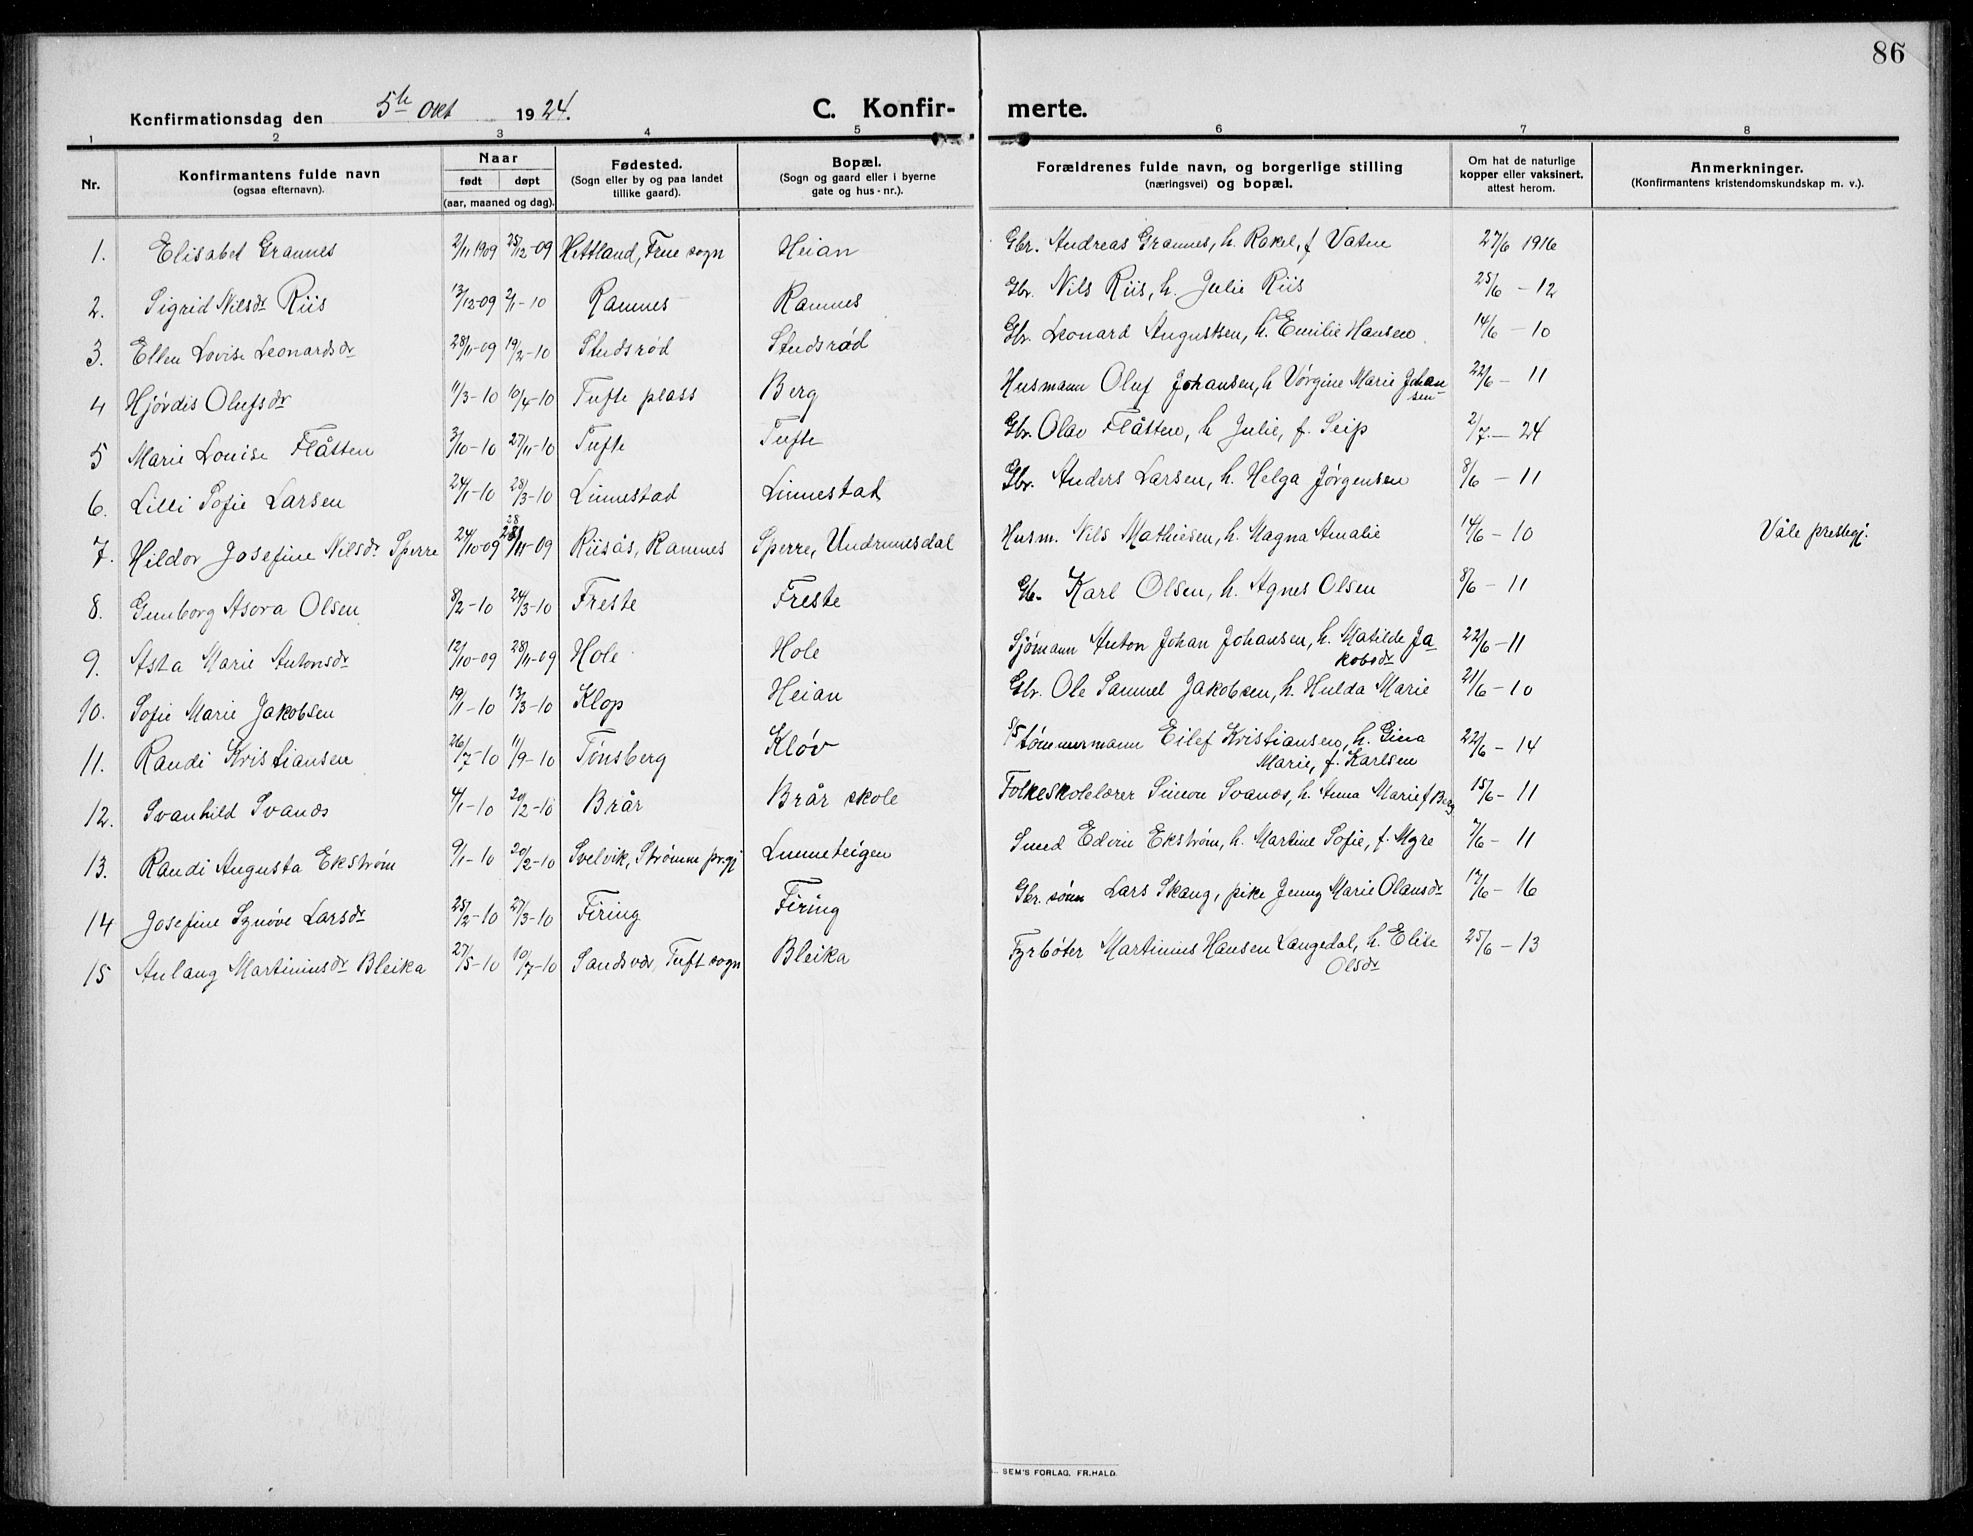 86
Konfirmationsdag den 5te Okt 1924. C. Konfirmerte.
1 2 3 4 5 6 7 8
Nr. Konfirmantens fulde navn (ogsaa efternavn). Naar født døpt (aar, maaned og dag). Fødested. (Sogn eller by og paa landet tillike gaard). Bopæl. (Sogn og gaard eller i byerne gate og hus-nr.). Forældrenes fulde navn, og borgerlige stilling (næringsvei) og bopæl. Om hat de naturlige kopper eller vaksinert, attest herom. Anmerkninger. (Konfirmantens kristendomskundskap m. v.).
1. Elisabet Grannes 2/11 1909 25/12-09 Hettland, Frue sogn Heian Gbr. Andreas Grannes, h. Rakel, f. Vatne 27/6 1916
2. Sigrid Nilsdr Riis 13/12-09 2/1-10 Ramnes Ramnes Gbr. Nils Riis, h. Julie Riis 25/6-12
3. Ellen Lovise Leonardsdr 28/11-09 19/2-10 Studsrød Studsrød Gbr. Leonard Augustsen, h. Emilie Hansen 14/6-10
4 Hjørdis Olufsdr 11/3-10 10/4-10 Tufte plass Berg Husmann Oluf Johansen, h. Vørgine Marie Johansen 22/6-11
5 Marie Louise Flåtten 3/10-10 27/11-10 Tufte Tufte Gbr. Olav Flåtten, h. Julie, f. Seip 2/7-24
6. Lilli Sofie Larsen 24/1-10 28/3-10 Linnestad Linnestad Gbr. Anders Larsen, h. Helga Jørgensen 8/6-11
7. Hildor Josefine Nilsdr Sperre 24/10-09 28/11-09 Riisås, Ramnes Sperre, Undrumsdal Husm. Nils Mathiesen, h. Magna Amalie 14/6-10 Våle prestegj.
8. Gunborg Asora Olsen 8/2-10 24/3-10 Freste Freste Gb. Karl Olsen, h. Agnes Olsen 8/6-11
9. Asta Marie Antonsdr 12/10-09 28/11-09 Hole Hole Sjømann Anton Johan Johansen, h. Matilde Jakobsdr 22/6-11
10. Sofie Marie Jakobsen 19/1-10 13/3-10 Klop Heian Gbr. Ole Samuel Jakobsen, h. Hulda Marie 21/6-10
11. Randi Kristiansen 26/7-10 11/9-10 Tønsberg Kløv tømmermann Eilef Kristiansen, h. Gina Marie, f. Karlsen 22/6-14
12. Svanhild Svanøs 4/1-10 20/2-10 Brår Brår skole Folkeskolelærer Simon Svanøs, h. Anna Marie f Berg 15/6-11
13. Randi Augusta Ekstrøm 9/1-10 20/2-10 Svelvik, Strømm prgj Linneteigen Smed Edvin Ekstrøm, h. Martine Sofie, f. Myre 7/6-11
14 Josefine Synøve Larsdr 25/2-10 27/3-10 Firing Firing Gbr. sønn Lars Skaug, pike Jenny Marie Olausdr 17/6-16
15 Aulaug Martiniusdr Bleika 27/5-10 10/7-10 Sandsvær, Tuft sogn Bleika Fyrbøter Martinius Hansen Langedal, h. Elise Olsdr 25/6-13
SEM'S FORLAG, FR.HALD.